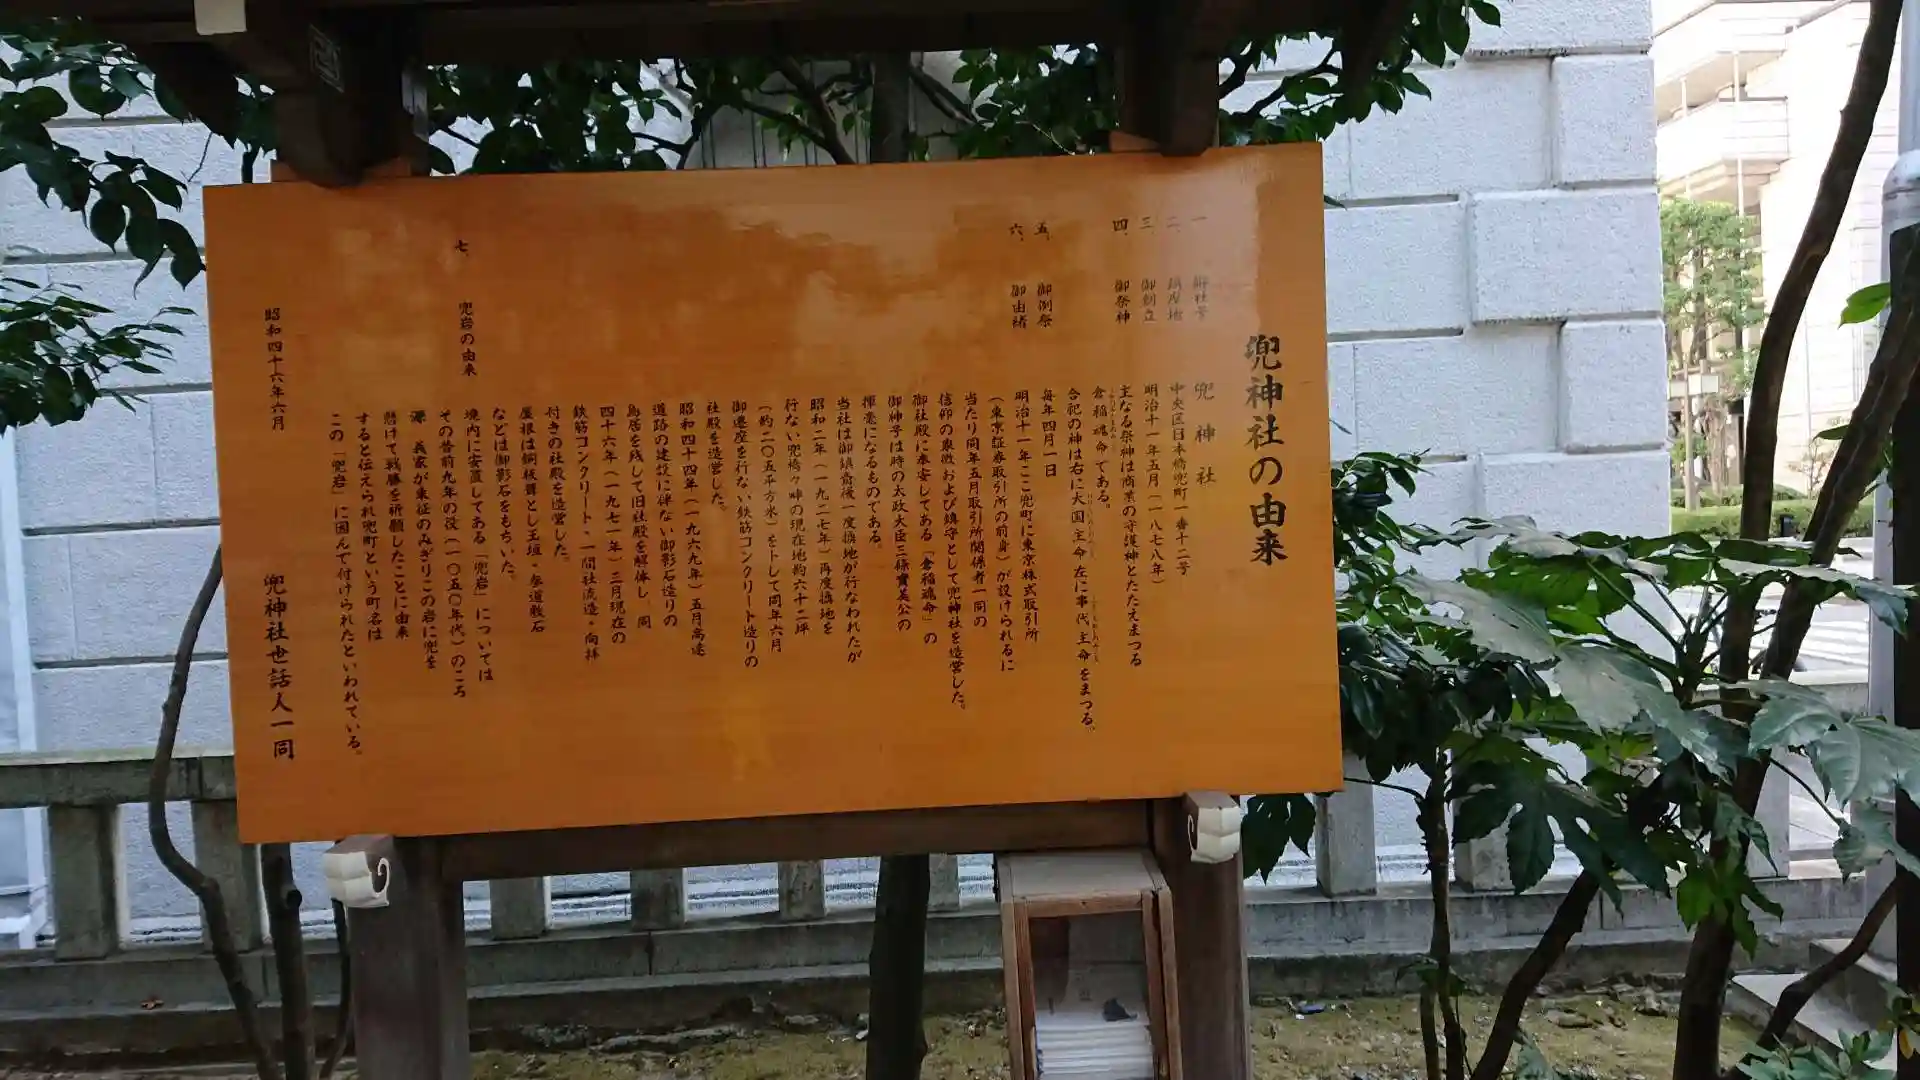 兜神社の由来
一、 御社号 兜神社
二、 鎮座地 中央区日本橋兜町一番十二号
三、 御創立 明治十一年五月(一八七八年)
四、 御祭神 主なる祭神は商業の守護神とたたえまつる
倉稲魂命である。
合祀の神は右に大国主命左に事代主命をまつる。
五、 御例祭 毎年四月一日
六、 御由緒 明治十一年ここ兜町に東京株式取引所
(東京証券取引所の前身)が設けられるに
当たり同年五月取引所関係者一同の
信仰の象徴および鎮守として兜神社を造営した。
御社殿に奉安してある「倉稲魂命」の
御神号は時の太政大臣三條實美公の
揮毫になるものである。
当社は御鎮斎後一度換地が行なわれたが
昭和二年(一九二七年)再度換地を
行ない兜橋々畔の現在地約六十二坪
(約二〇五平方米)を卜して同年六月
御遷座を行ない鉄筋コンクリート造りの
社殿を造営した。
昭和四十四年(一九六九年)五月高速
道路の建設に伴ない御影石造りの
鳥居を残して旧社殿を解体し 同
四十六年(一九七一年)三月現在の
鉄筋コンクリート・一間社流造・向拝
付きの社殿を造営した。
屋根は銅板葺とし玉垣・参道敷石
などは御影石をもちいた。
七、 兜岩の由来 境内に安置してある「兜岩」については
その昔前九年の役(一〇五〇年代)のころ
源 義家が東征のみぎりこの岩に兜を
懸けて戦勝を祈願したことに由来
すると伝えられ兜町という町名は
この「兜岩」に因んで付けられたといわれている。
昭和四十六年六月 兜神社世話人一同